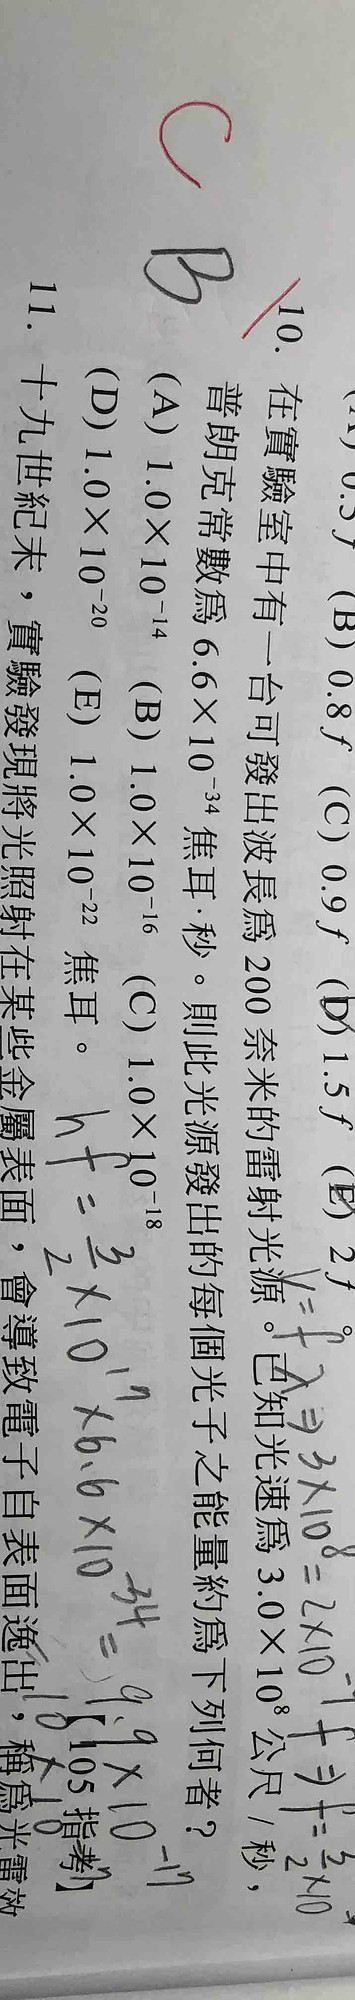 0.5f (B) 0.8f (C) 0.9f (D) 1.5f (E) 2f。
C
B
10. 在實驗室中有一台可發出波長為 200 奈米的雷射光源。已知光速為 3.0×10⁸ 公尺/秒,
普朗克常數為 6.6×10⁻³⁴ 焦耳·秒。則此光源發出的每個光子之能量約為下列何者?
(A) 1.0×10⁻¹⁴ (B) 1.0×10⁻¹⁶ (C) 1.0×10⁻¹⁸
(D) 1.0×10⁻²⁰ (E) 1.0×10⁻²² 焦耳。
【105 指考】
V=fλ ⇒ 3×10⁸ = 2×10 f ⇒ f = 3/2 ×10
hf = 3/2 ×10¹⁷ ×6.6×10⁻³⁴ = 9.9×10⁻¹⁷
11. 十九世紀末,實驗發現將光照射在某些金屬表面,會導致電子自表面逸出,稱為光電效